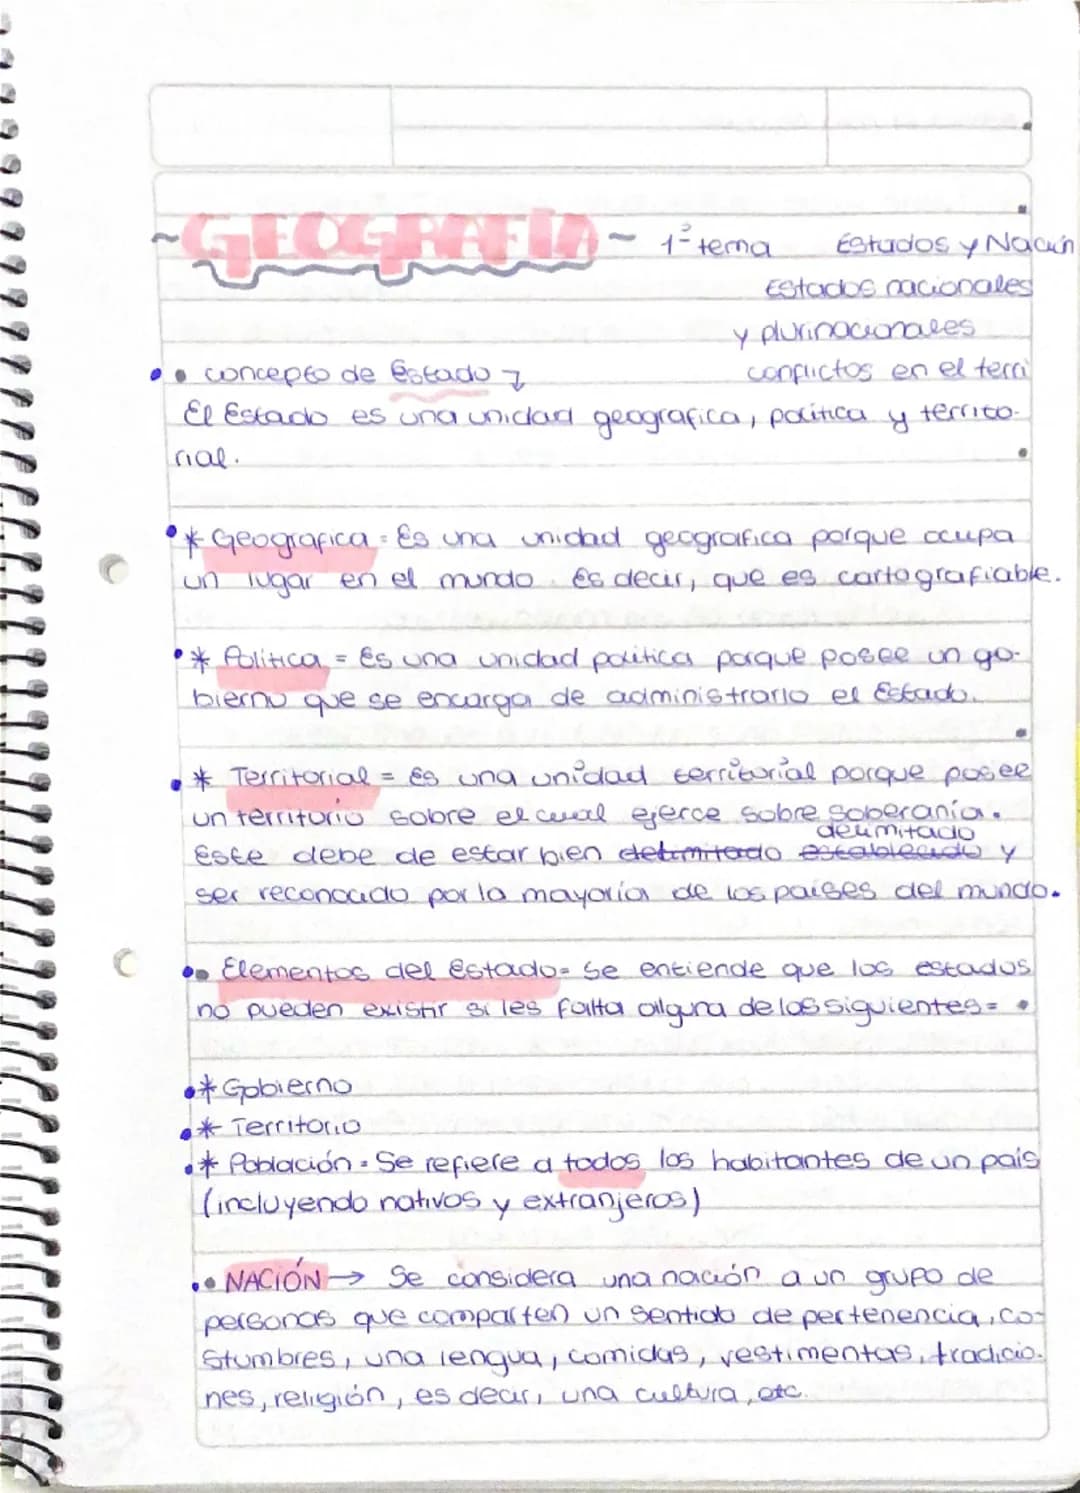 ~GEOGRAFÍA~ 1º tema Estados y Nación
Estados nacionales
y plurinacionales
conflictos en el terri
• concepto de Estado
El Estado es una unidad geografica, política y territo-
rial.
* Geografica = Es una unidad geografica porque ocupa
un lugar en el mundo. Es decir, que es cartografiable.
* Política = Es una unidad política porque posee un go-
bierno que se encarga de administrarlo el Estado.
* Territorial = Es una unidad territorial porque posee
un territorio sobre el cual ejerce sobre soberanía.
delimitado
Este debe de estar bien delimitado establecido y
ser reconocido por la mayoría de los países del mundo.
• Elementos del Estado = Se entiende que los estados
no pueden existir si les falta alguna de las siguientes =
* Gobierno
* Territorio
* Población = Se refiere a todos los habitantes de un país
(incluyendo nativos y extranjeros)
• NACIÓN → Se considera una nación a un grupo de
personas que comparten un sentido de pertenencia, co-
stumbres, una lengua, comidas, vestimentas, tradicio-
nes, religión, es decir, una cultura, etc.